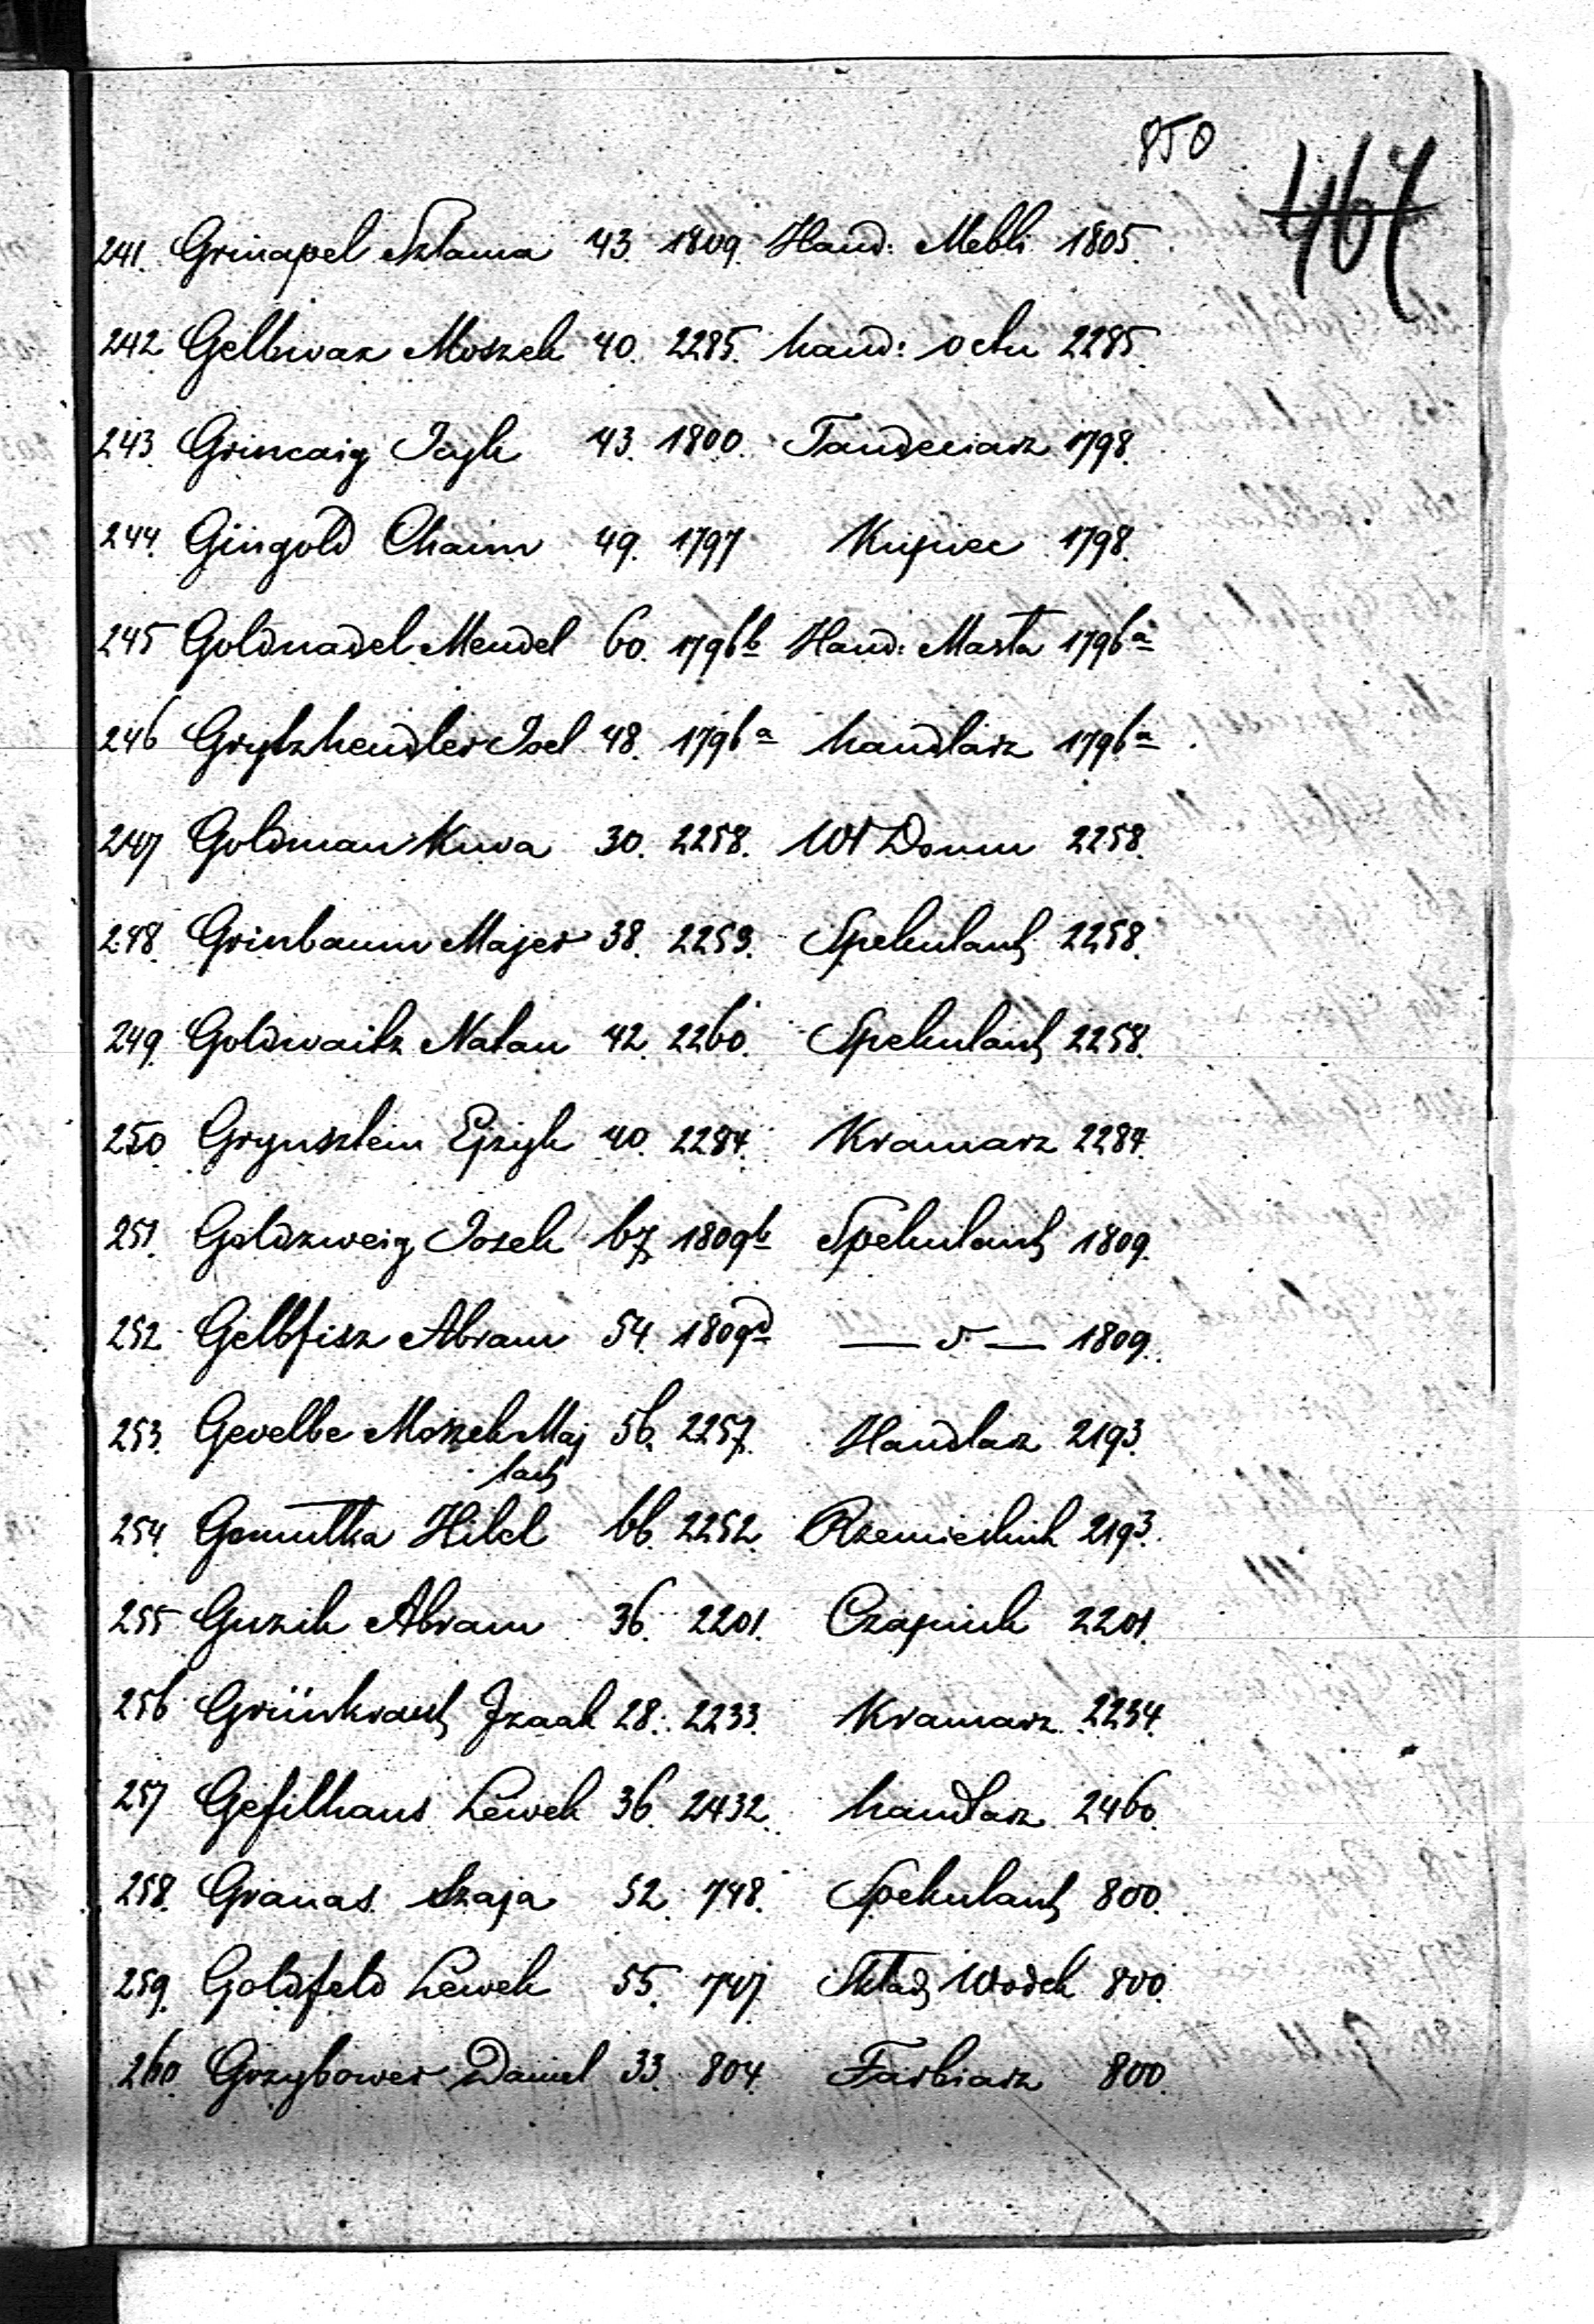 850
467
241. Grinapel Szlama 43. 1809. Hand: Mebli 1805.
242 Gelbwax Moszek 40. 2285. hand: octu 2285.
243. Grincaig Icyk 43. 1800. Tandeciarz 1798.
244. Gingold Chaim 49. 1797 Kupiec 1798.
245 Goldnadel Mendel 60. 1796b Hand: Masła 1796a
246 Grytzhendler Joel 48. 1796a handlarz 1796a
247 Goldman Kiwa 30. 2258. Wł Domu 2258.
248. Grinbaum Majer 38. 2259. Spekulant 2258.
249. Goldwaitz Natan 42. 2260. Spekulant 2258.
250 Grynsztein Ejzyk 40. 2284. Kramarz 2284.
251. Goldzweig Josek 67. 1809b Spekulant 1809.
252. Gelbfisz Abram 54. 1809d — d — 1809.
253. Gevelbe Moszek Maj 56. 2257. Handlaz 2193.
łach
254. Gomułka Hilel 66. 2252. Rzemieślnik 2193.
255 Guzik Abram 36. 2201. Czapnik 2201.
256 Grünkraut Izaak 28. 2233. Kramarz 2234.
257 Gefilhaus Lewek 36. 2432. handlarz 2460.
258. Granas Szaja 52. 748. Spekulant 800.
259. Goldfeld Lewek 55. 747. Skład Wódek 800.
260. Grzybower Daniel 33. 804. Farbiarz 800.